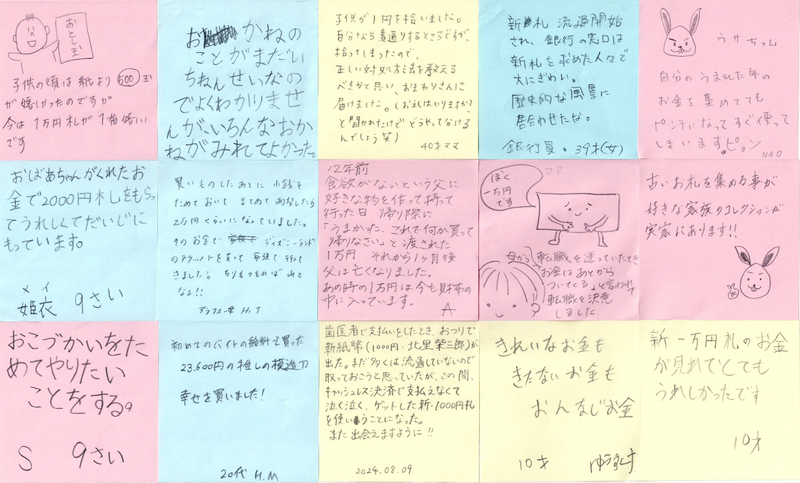 おとし玉
子供の頃は紙より500玉
が嬉しかったのですが
今は1万円札が1番嬉しい
です
おかねの
ことがまだい
ちねんせいなの
でよくわかりませ
んが、いろんなおか
ねがみれてよかった。
子供が1円を拾いました。
自分なら素通りするところですが、
拾ってしまったので、
正しい対処方法を教える
べきかと思い、おまわりさんに
届けました。(お礼はいりますか?
と聞かれたけどどうやってなげる
んでしょう笑)
40才ママ
新札流通開始
され、銀行の窓口は
新札を求めた人々で
大にぎわい。
歴史的な風景に
立ち合わせたな。
銀行員。39才(女)
ウサちゃん
自分のうまれた年の
お金を集めてても
ピンチになってすぐ使って
しまいます。ピョン
NAO
おばあちゃんがくれたお
金で2000円札をもらっ
てうれしくてだいじに
もっています。
メイ
姫衣 9さい
買いものしたあとに小銭を
ためておいて まとめてあけたら
25円くらいになっていました。
そのお金で ディズニーランド
のチケットを買って家族で行って
きました。ちりもつもれば山と
なる!!
アラフォー母 H.T
12年前
食欲がないという父に
好きな物を作って持って
行った日 帰り際に
「うまかった、これで何か買って
帰りなさい」と渡された
1万円 それから1ヶ月後
父は亡くなりました。
あの時の1万円は今も財布の
中に入っています。
A
ぼく
一万円
です
母から
転職を迷っていたとき
「お金はあとから
ついてくる」と言われて
転職を決意
しました
古いお札を集める事が
好きな家族のコレクションが
実家にあります!!
おこづかいをた
めてやりたい
ことをする。
S 9さい
初めてのバイトの給料で買った
23,600円の推しの模造刀
幸せを買いました!
20代 H.M
歯医者で支払いをしたとき、おつりで
新紙幣(1000円・北里柴三郎)が
出た。まだ多くは流通していないので
取っておこうと思っていたが、この間、
キャッシュレス決済で支払えなくて
泣く泣く、ゲットした新・1000円札
を使うことになった。
また出会えますように!!
2024.08.09
きれいなお金も
きたないお金も
おんなじお金
10才 ゆうすけ
新一万円札のお金
が見れてとても
うれしかったです
10才